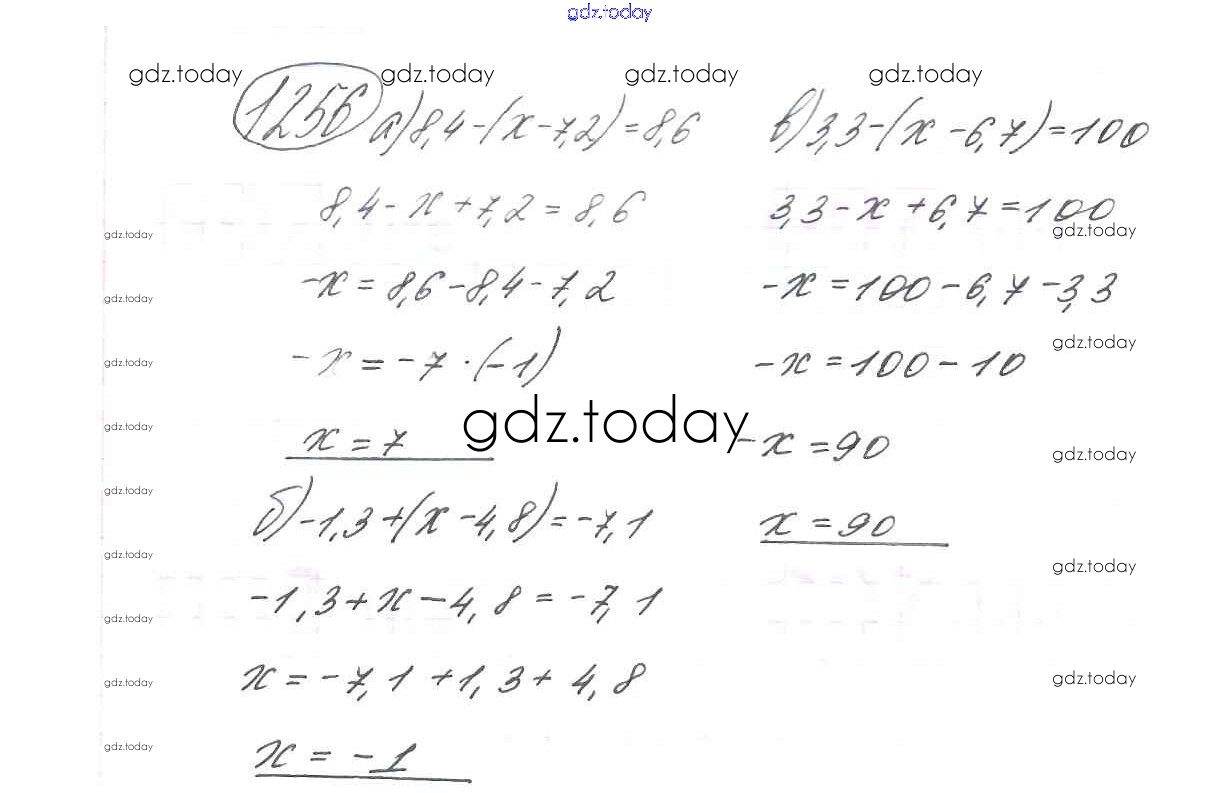 gdz.today
gdz.today gdz.today gdz.today gdz.today
1256 а) 8,4-(x-7,2)=8,6
8,4-x+7,2=8,6
gdz.today
-x=8,6-8,4-7,2
gdz.today
-x=-7·(-1)
gdz.today
gdz.today
x=7
gdz.today
б) -1,3+(x-4,8)=-7,1
gdz.today
-1,3+x-4,8=-7,1
gdz.today
gdz.today
x=-7,1+1,3+4,8
gdz.today
x=-1
gdz.today
в) 3,3-(x-6,7)=100
3,3-x+6,7=100
gdz.today
-x=100-6,7-3,3
gdz.today
-x=100-10
-x=90
gdz.today
x=90
gdz.today
gdz.today